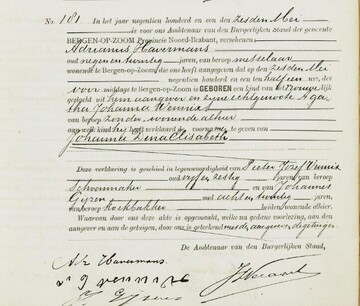 No. 181 In het jaar negentien honderd en een den zesden Mei
is voor ons Ambtenaar van den Burgerlijken Stand der gemeente
BERGEN-OP-ZOOM Provincie Noord-Brabant, verschenen:
Adrianus Havermans
oud negen en twintig jaren, van beroep metselaar
wonende te Bergen-op-Zoom die ons heeft aangegeven dat op den zesden Mei
dezer te een en een half uur, des
voor middags te Bergen-op-Zoom is GEBOREN een kind van het vrouwelijk
geslacht uit hem aangever en zijne echtgenoote Aga
tha Johanna Wennix
van beroep zonder, wonende alhier
aan welk kind hij heeft verklaard de voorname te geven van
Johanna Dina Elisabeth
Deze verklaring is geschied in tegenwoordigheid van Pieter Jozef Wennix
oud vijf en zestig jaren van beroep
Schoenmaker en van Johannes
Gijzen oud achtentwintig jaren,
van beroep koekbakker beiden wonende alhier.
Waarvan door ons deze akte is opgemaakt, welke na gedane voorlezing, aan den
aangever en aan de getuigen, door ons is geteekend met de aangever en de getuigen
De Ambtenaar van den Burgerlijken Stand,
A. Havermans